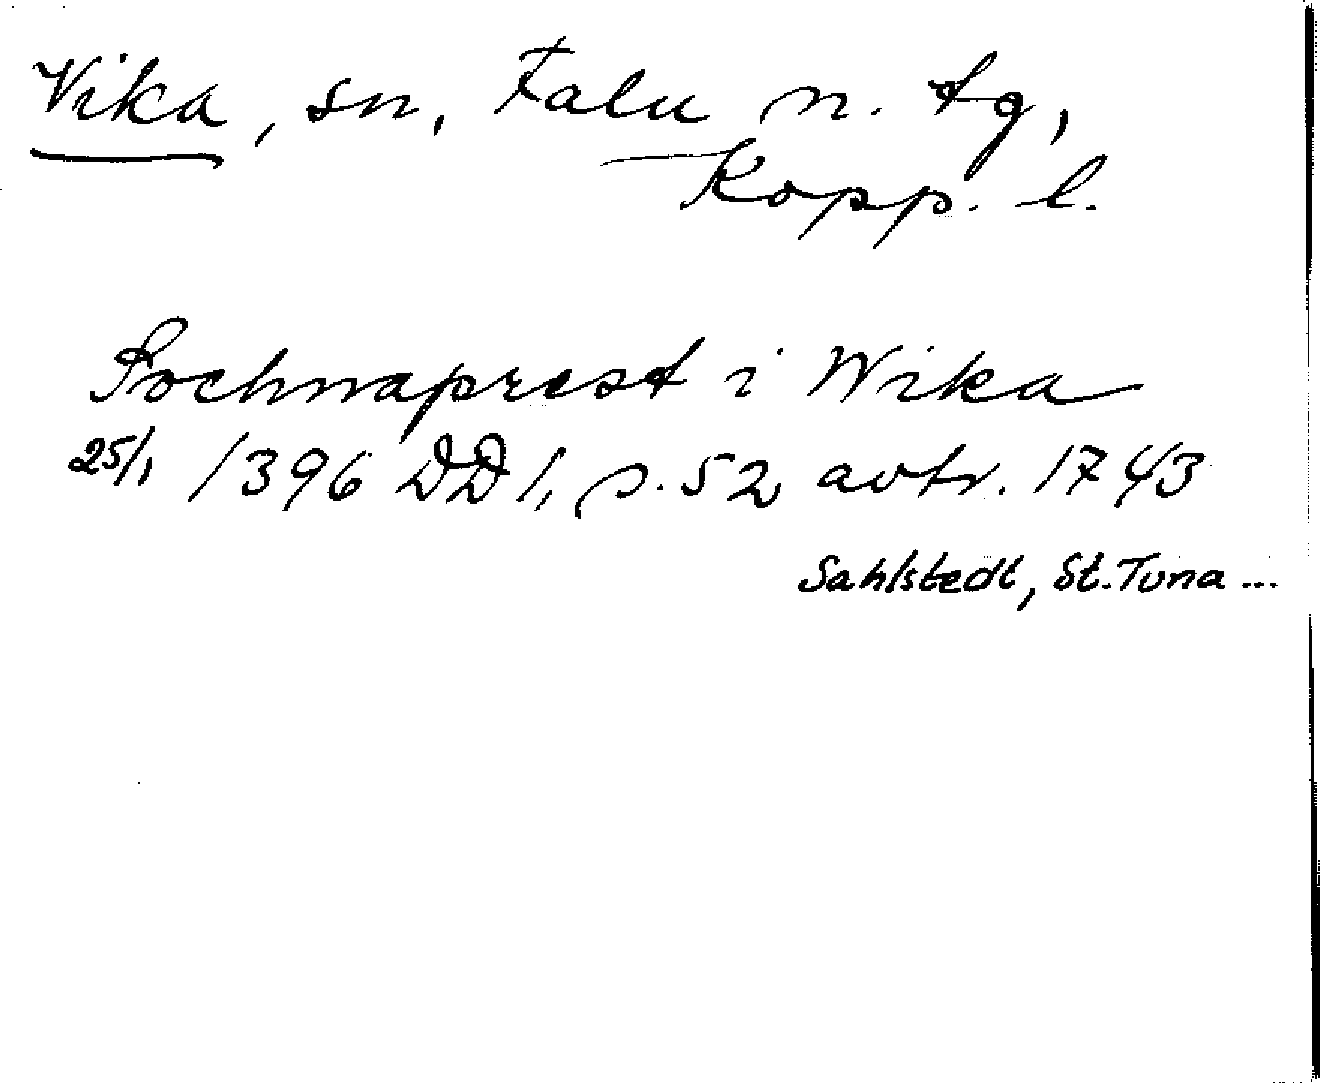 Vika, sn, Falu n. tg,
Kopp. l.
Sochnaprest i Wika
25/1 1396 DD 1, s. 52 avtr. 1743
Sahlstedt, St. Tuna ...